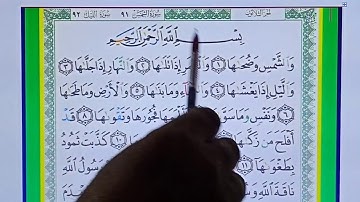 الجزء الثلاثون سُورَةُ الشَّمْسِ ٩١ سُورَةُ اللَّيْلِ ٩٢
بِسْمِ اللَّهِ الرَّحْمَٰنِ الرَّحِيمِ
وَالشَّمْسِ وَضُحَىٰهَا ١ وَالْقَمَرِ إِذَا تَلَىٰهَا ٢ وَالنَّهَارِ إِذَا جَلَّىٰهَا ٣
وَالَّيْلِ إِذَا يَغْشَىٰهَا ٤ وَمَا بَنَىٰهَا ٥ وَالْأَرْضِ وَمَا طَحَىٰهَا
٦ وَنَفْسٍ وَمَا سَوَّىٰهَا ٧ فُجُورَهَا وَتَقْوَىٰهَا ٨ قَدْ
أَفْلَحَ مَن زَكَّىٰهَا ١٠ كَذَّبَتْ ثَمُودُ
بِطَغْوَىٰهَا ١١ رَسُولُ اللَّهِ
نَاقَةَ اللَّهِ